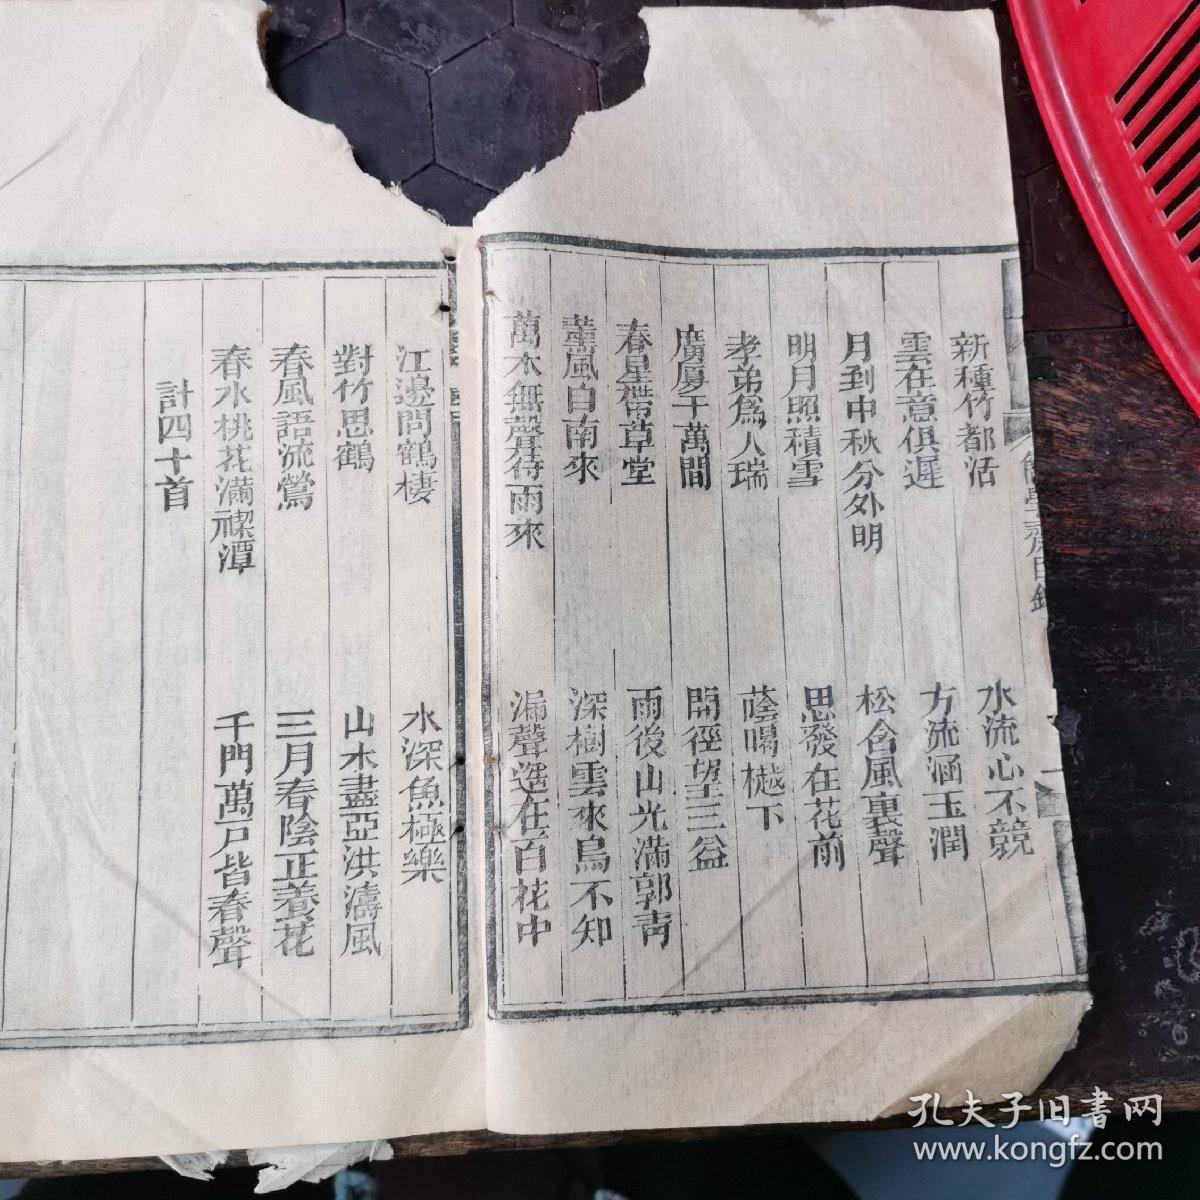 新種竹都活
水流心不競
雲在意俱遲
方流涵玉潤
月到中秋分外明
松含風裏聲
明月照積雪
思發在花前
孝弟爲人瑞
蔭暍樾下
廣厦千萬間
開徑望三益
春星帶草堂
雨後山光滿郭青
薰風自南來
深樹雲來鳥不知
萬木無聲待雨來
漏聲遙在百花中
江邊問鶴棲
水深魚極樂
對竹思鶴
山木盡亞洪濤風
春風語流鶯
三月春陰正養花
春水桃花滿禊潭
千門萬戶皆春聲
計四十首
孔夫子旧書网
www.kongfz.com